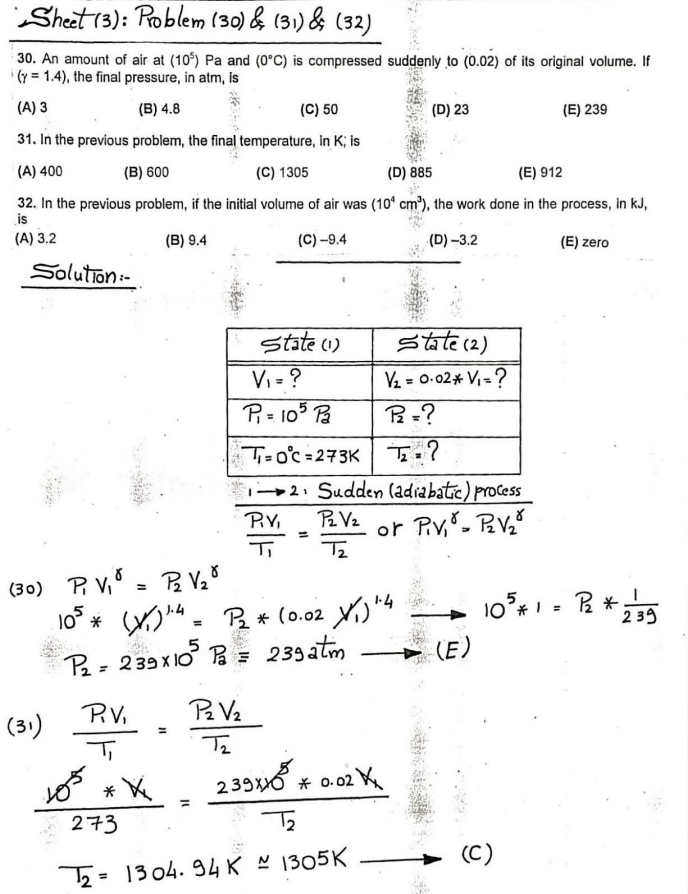 Sheet (3): Problem (30) & (31) & (32)
30. An amount of air at (10⁵) Pa and (0°C) is compressed suddenly to (0.02) of its original volume. If
(γ = 1.4), the final pressure, in atm, is
(A) 3 (B) 4.8 (C) 50 (D) 23 (E) 239
31. In the previous problem, the final temperature, in K; is
(A) 400 (B) 600 (C) 1305 (D) 885 (E) 912
32. In the previous problem, if the initial volume of air was (10⁴ cm³), the work done in the process, in kJ,
is
(A) 3.2 (B) 9.4 (C) –9.4 (D) –3.2 (E) zero
Solution:-
State (1) State (2)
V₁ = ? V₂ = 0.02 * V₁ = ?
P₁ = 10⁵ Pa P₂ = ?
T₁ = 0°C = 273K T₂ = ?
1 → 2: Sudden (adiabatic) process
P₁V₁/T₁ = P₂V₂/T₂ or P₁V₁^γ = P₂V₂^γ
(30) P₁ V₁^γ = P₂ V₂^γ
10⁵ * (V₁)^1.4 = P₂ * (0.02 V₁)^1.4 → 10⁵ * 1 = P₂ * 1/239
P₂ = 239 × 10⁵ Pa ≡ 239 atm → (E)
(31) P₁V₁/T₁ = P₂V₂/T₂
10⁵ * V₁/273 = 239×10⁵ * 0.02 V₁/T₂
T₂ = 1304.94 K ≃ 1305K → (C)